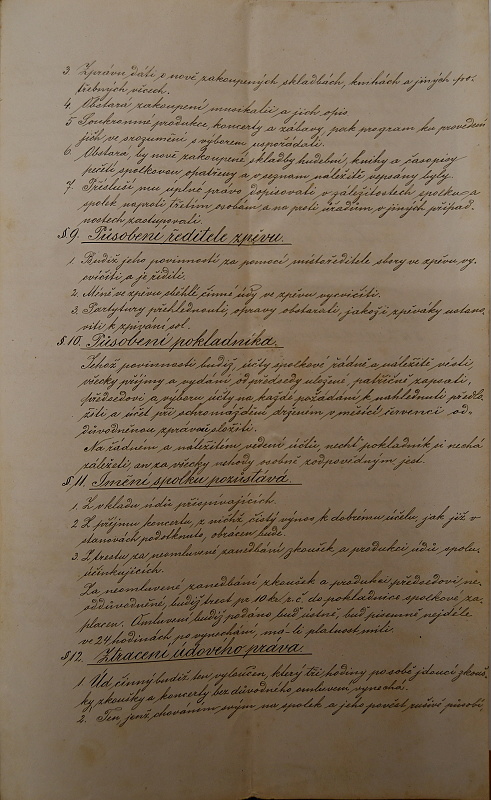 3. Zprávu dáti o nově zakoupených skladbách, knihách a jiných po-
třebných věcech.
4. Obstará zakoupení musikalií a jich opis
5. Soukromné produkce, koncerty a zábavy, pak program ku provedení
jich ve srozumění s výborem uspořádati.
6. Obstará, by nově zakoupené skladby hudební, knihy a časopisy
pečetí spolkovou opatřeny a v seznam náležitě vepsány byly.
7. Přísluší mu úplné právo dopisovati v záležitostech spolku a
spolek naproti třetím osobám a na proti úřadům v jiných případ-
nostech zastupovati.
§ 9. Působení ředitele zpěvu.
1. Budiž jeho povinností za pomocí místoředitele sbory ve zpěvu vy-
cvičiti a je říditi.
2. Méně ve zpěvu sběhlé činné údy ve zpěvu vycvičiti.
3. Partytury přehlednouti, opravy obstarati, jakož i zpěváky ustano-
viti k zpívání sol.
§ 10. Působení pokladníka.
Jehož povinností budiž, účty spolkové řádně a náležitě vésti,
všecky příjmy a vydání od předsedy uložené patřičně zapsati,
předsedovi a výboru účty na každé požádání k nahlédnutí předlo-
žiti a účet při schromáždění drženém v měsíci červenci od-
důvodněnou zprávou složiti.
Na řádném a náležitém vedení účtů, nechť pokladník si nechá
záležeti, an za všecky nehody osobně zodpovídným jest.
§ 11. Jmění spolku pozůstává.
1. Z vkladu údů přispívajících.
2. Z příjmu koncertu, z nichž čistý výnos k dobrému účelu, jak již v
stanovách podotknuto, obrácen bude.
3. Z trestu za neomluvené zanedbání zkoušek a produkcí údů spolu-
účinkujících.
Za neomluvené zanedbání zkoušek a produkcí předsedovi ne-
oddůvodněné, budiž trest pr 10 kr. r. č. do pokladnice spolkové za-
placen. Omluvení budiž podáno buď ústně, buď písemně nejdéle
ve 24 hodinách po vynechání, má-li platnost míti.
§ 12. Ztracení údového práva.
1. Úd činný budiž ten vyloučen, který tři hodiny po sobě jdoucí zkouš-
ky, zkoušky a koncerty bez důvodného omluvení vynechá.
2. Ten, jenž chováním svým na spolek a jeho pověst rušivě působí,